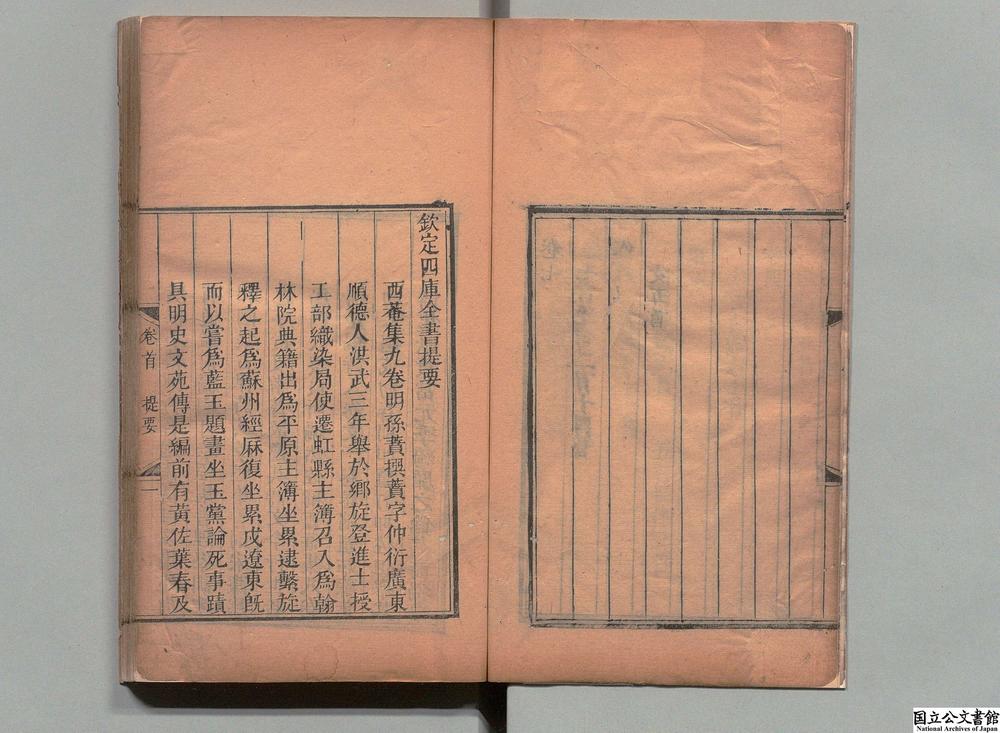 欽定四庫全書提要
西菴集九卷明孫蕡撰蕡字仲衍廣東
順德人洪武三年舉於鄉旋登進士授
工部織染局使遷虹縣主簿召入爲翰
林院典籍出爲平原主簿坐累逮繫旋
釋之起爲蘇州經厤復坐累戍遼東旣
而以嘗爲藍玉題畫坐玉黨論死事蹟
具明史文苑傳是編前有黃佐葉春及
卷首 提要 一
国立公文書館
National Archives of Japan